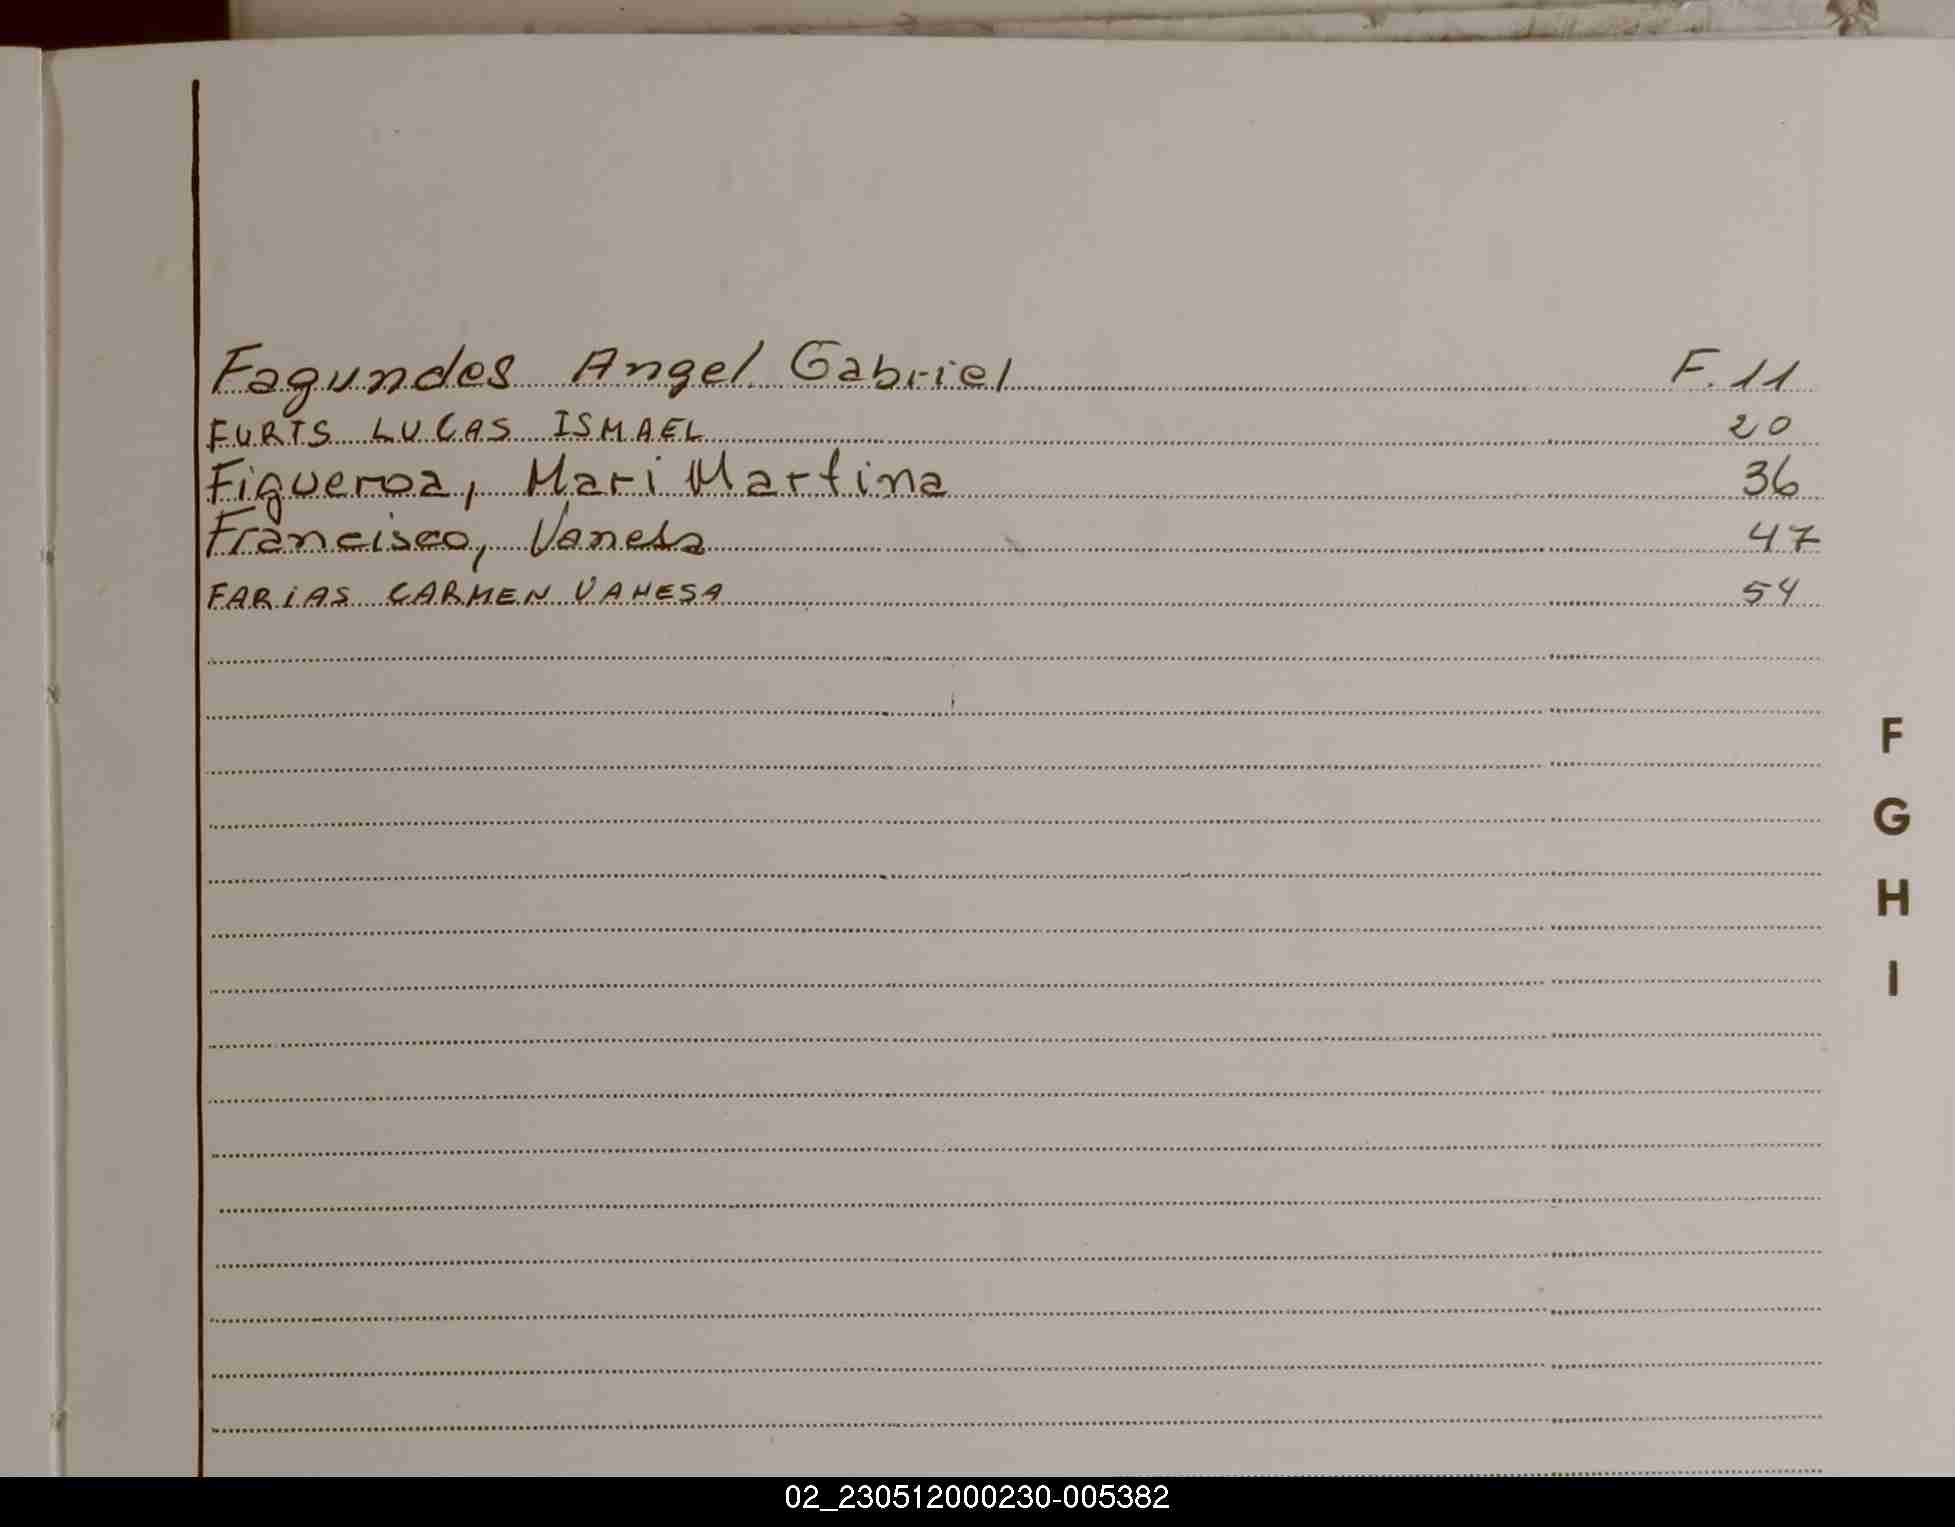 Fagundes Angel Gabriel F. 11
FURTS LUCAS ISMAEL 20
Figueroa, Mari Martina 36
Francisco, Vanesa 47
FARIAS CARMEN VANESA 54
F
G
H
I
02_230512000230-005382